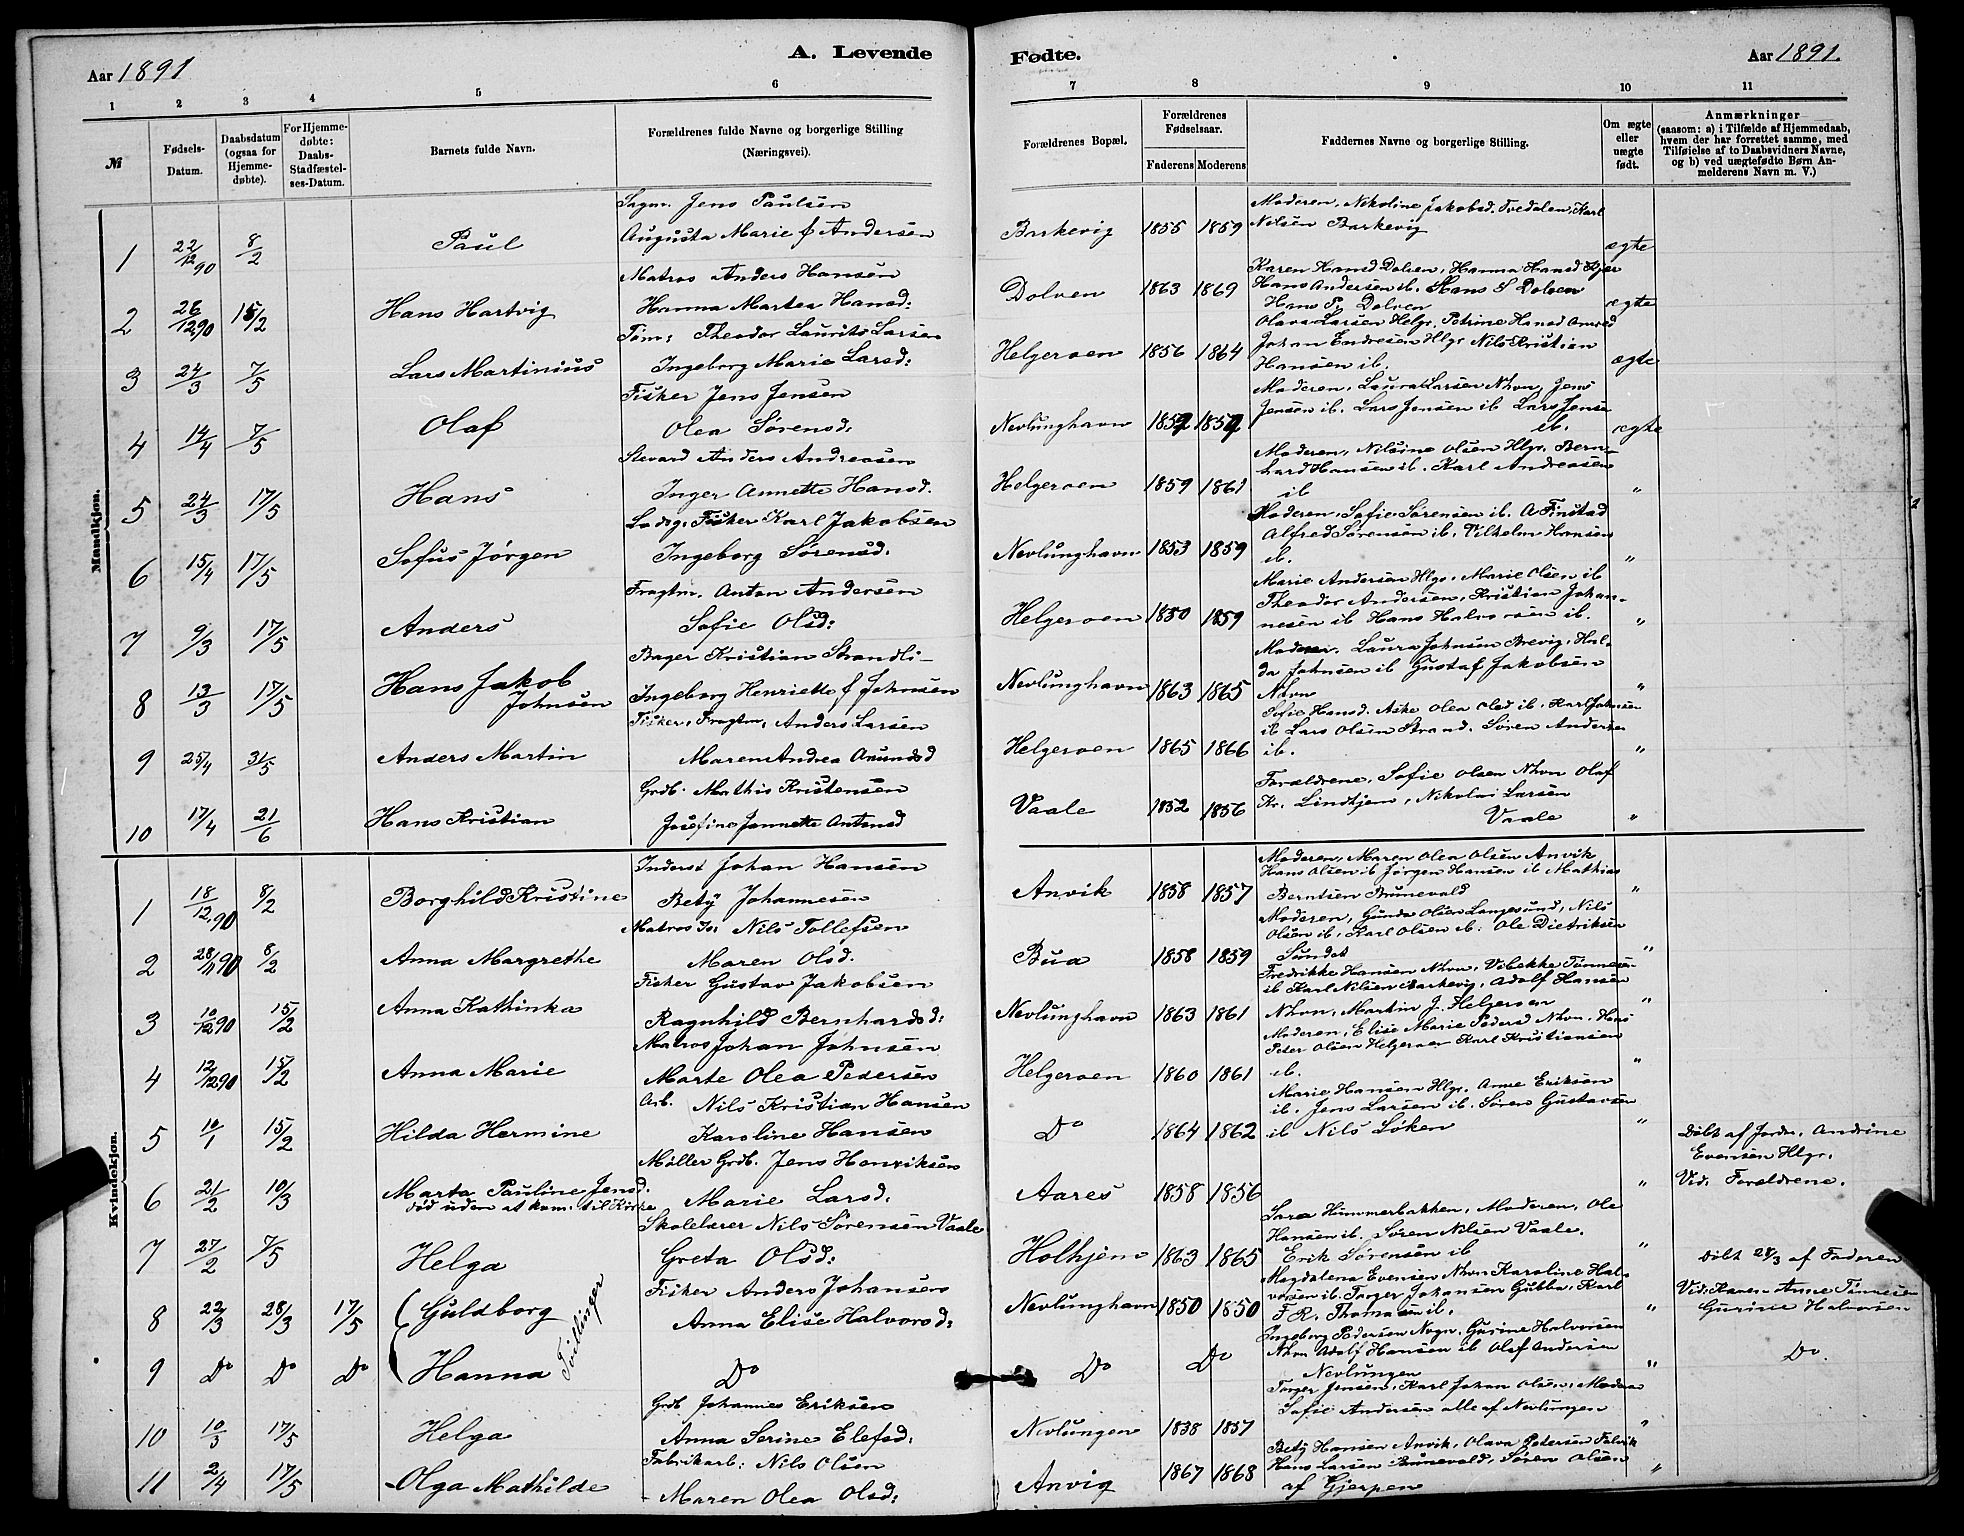 Aar 1891
A. Levende
Fødte.
Aar 1891.
1 2 3 4 5 6 7 8 9 10 11
№
Fødsels-Datum.
Daabsdatum (ogsaa for Hjemme-døbte).
For Hjemme-døbte: Daabs-Stadfæstel-ses-Datum.
Barnets fulde Navn.
Forældrenes fulde Navne og borgerlige Stilling (Næringsvei).
Forældrenes Bopæl.
Forældrenes Fødselsaar.
Faderens Moderens
Faddernes Navne og borgerlige Stilling.
Om ægte eller uægte født.
Anmærkninger
(saasom: a) i Tilfælde af Hjemmedaab,
hvem der har forrettet samme, med
Tilføielse af to Daabsvidners Navne,
og b) ved uægtefødte Børn An-
melderens Navn m. V.)
Mandkjøn.
1 22/12 90 8/2 Paul
Sagm. Jens Paulsen
Augusta Marie f Andersen
Barkevig 1855 1859
Moderen, Nikoline Jakobsd. Tvedalen, Karl
Nilsen Barkevig
ægte
2 26/12 90 15/2 Hans Hartvig
Matros Anders Hansen
Hanna Martea Hansd:
Dolven 1863 1869
Karen Hansd Dolven, Hanna Hansd
Hans Andersen ib. Hans S Dolven
Hans P. Dolven
ægte
3 24/3 7/5 Lars Martinius
Tøm: Theodor Laurits Larsen
Ingeborg Marie Larsd:
Helgeroen 1856 1864
Olava Larsen Helgr. Petrine Hansd
Johan Endresen Hlgr Nils Kristian
Hansen ib.
ægte
4 14/4 7/5 Olaf
Fisker Jens Jensen
Olea Sørensd:
Nevlunghavn 1859 1859
Moderen, Laura Larsen Nhvn, Jens
Jensen ib. Lars Jensen ib Lars Jense
ib.
ægte
5 24/3 17/5 Hans
Stevard Anders Andreasen
Inger Annette Hansd.
Helgeroen 1859 1861
Moderen, Nilsine Olsen Hlgr. Bern-
hard Hansen ib. Karl Andreasen
ib
"
6 15/4 17/5 Sofus Jørgen
Lodsg. Fisker Karl Jakobsen
Ingeborg Sørensd.
Nevlunghavn 1853 1859
Moderen, Sofie Sørensen ib. A Finstad
Alfred Sørensen ib. Vilhelm Hansen
ib.
"
7 9/3 17/5 Anders
Fragtm. Anton Andersen
Sofie Olsd:
Helgeroen 1850 1859
Marie Andersen Hlgr. Marie Olsen ib
Theodor Andersen, Kristian Johan-
nesen ib Hans Halvorsen ib.
"
8 13/3 17/5 Hans Jakob
Johnsen
Bager Kristian Strandli-
Ingeborg Henriette f Johnsen
Nevlunghavn 1863 1865
Moderen. Laura Johnsen Brevig, Hul-
da Johnsen ib Gustaf Jakobsen
Nhvn
"
9 25/4 31/5 Anders Martin
Fisker, Fragtm. Anders Larsen
Maren Andrea Amundsd
Helgeroen 1865 1866
Sofie Hansd. Aske Olea Olsd ib. Karl Johnsen
ib Lars Olsen Strand. Søren Andersen
ib.
"
10 17/4 21/6 Hans Kristian
Grdb. Mathis Kristensen
Josefine Jannette Antonsd
Vaale 1852 1856
Forældrene, Sofie Olsen Nhvn Olaf
Kr. Lindtjem, Nikolai Larsen
Vaale
"
Kvindekjøn.
1 18/12 90 8/2 Borghild Kristine
Inderst Johan Hansen
Bety Johannesen
Anvik 1858 1857
Moderen, Maren Olea Olsen Anvik
Hans Olsen ib Jørgen Hansen ib Mathias
Berntsen Brunevald
"
2 28/11 90 8/2 Anna Margrethe
Matros Nils Tollefsen
Maren Olsd.
Bua 1858 1859
Moderen, Gunda Olsen Langesund, Nils
Olsen ib. Karl Olsen ib. Ole Dietriksen
Sundet
"
3 10/12 90 15/2 Anna Kathinka
Fisker Gustav Jakobsen
Ragnhild Bernhardsd:
Nevlunghavn 1863 1861
Fredrikke Hansen Nhvn, Vibekke Tønnesen
ib Karl Nilsen Barkevig, Adolf Hansen
Nhvn, Martin J. Helgeroen
"
4 12/12 90 15/2 Anna Marie
Matros Johan Johnsen
Marte Olea Pedersen
Helgeroen 1860 1861
Moderen, Elise Marie Pedersd Nhvn. Hans
Peter Olsen Helgeroen Karl Kristiansen
ib.
"
5 10/1 15/2 Hilda Hermine
Arb. Nils Kristian Hansen
Karoline Hansen
Do 1864 1862
Marie Hansen Hlgr. Anne Eriksen
ib. Jens Larsen ib. Søren Gustavsen
ib Nils Løken
"
6 21/2 10/3 Marta Pauline Jensd.
død uden at kom: til Kirke
Møller Grdb. Jens Henriksen
Marie Larsd.
Aares 1858 1856
"
Døbt af Jordm. Andrine
Evensen Hlgr.
Vid. Forældrene.
7 27/2 7/5 Helga
Skolelærer Nils Sørensen Vaale
Greta Olsd:
Holhjem 1863 1865
Sara Hummerbakken, Moderen, Ole
Hansen ib. Søren Nilsen Vaale.
Erik Sørensen ib
"
8 22/3 28/3 17/5 Guldborg
Tvillinger
Fisker Anders Johansen
Anna Elise Halvorsd:
Nevlunghavn 1850 1850
Magdalena Evensen Nhvn Karoline Hal-
vorsen ib. Torger Johansen Gubba, Karl
F. R. Thomasen ib.
"
Døbt 28/3 af Faderen
Vid: Karen Anne Tønnesen
Gurine Halvorsen
9 Do Do Do Hanna
Do
Do Do
Ingeborg Pedersen Nvgn. Gurine Halvorsen
Nhvn Adolf Hansen ib Olaf Andersen
Nevlungen
"
Do.
10 10/3 17/5 Helga
Grdb Johannes Eriksen
Anna Serine Elefsd:
Nevlungen 1838 1857
Torger Jensen, Karl Johan Olsen, Moderen
Sofie Andersen alle af Nevlungen
"
11 2/4 17/5 Olga Mathilde
Fabrikarb: Nils Olsen
Maren Olea Olsd:
Anvig 1867 1868
Bety Hansen Anvik, Olava Petersen Falvik
Hans Larsen Brunevald, Søren Olsen
af Gjerpen
"